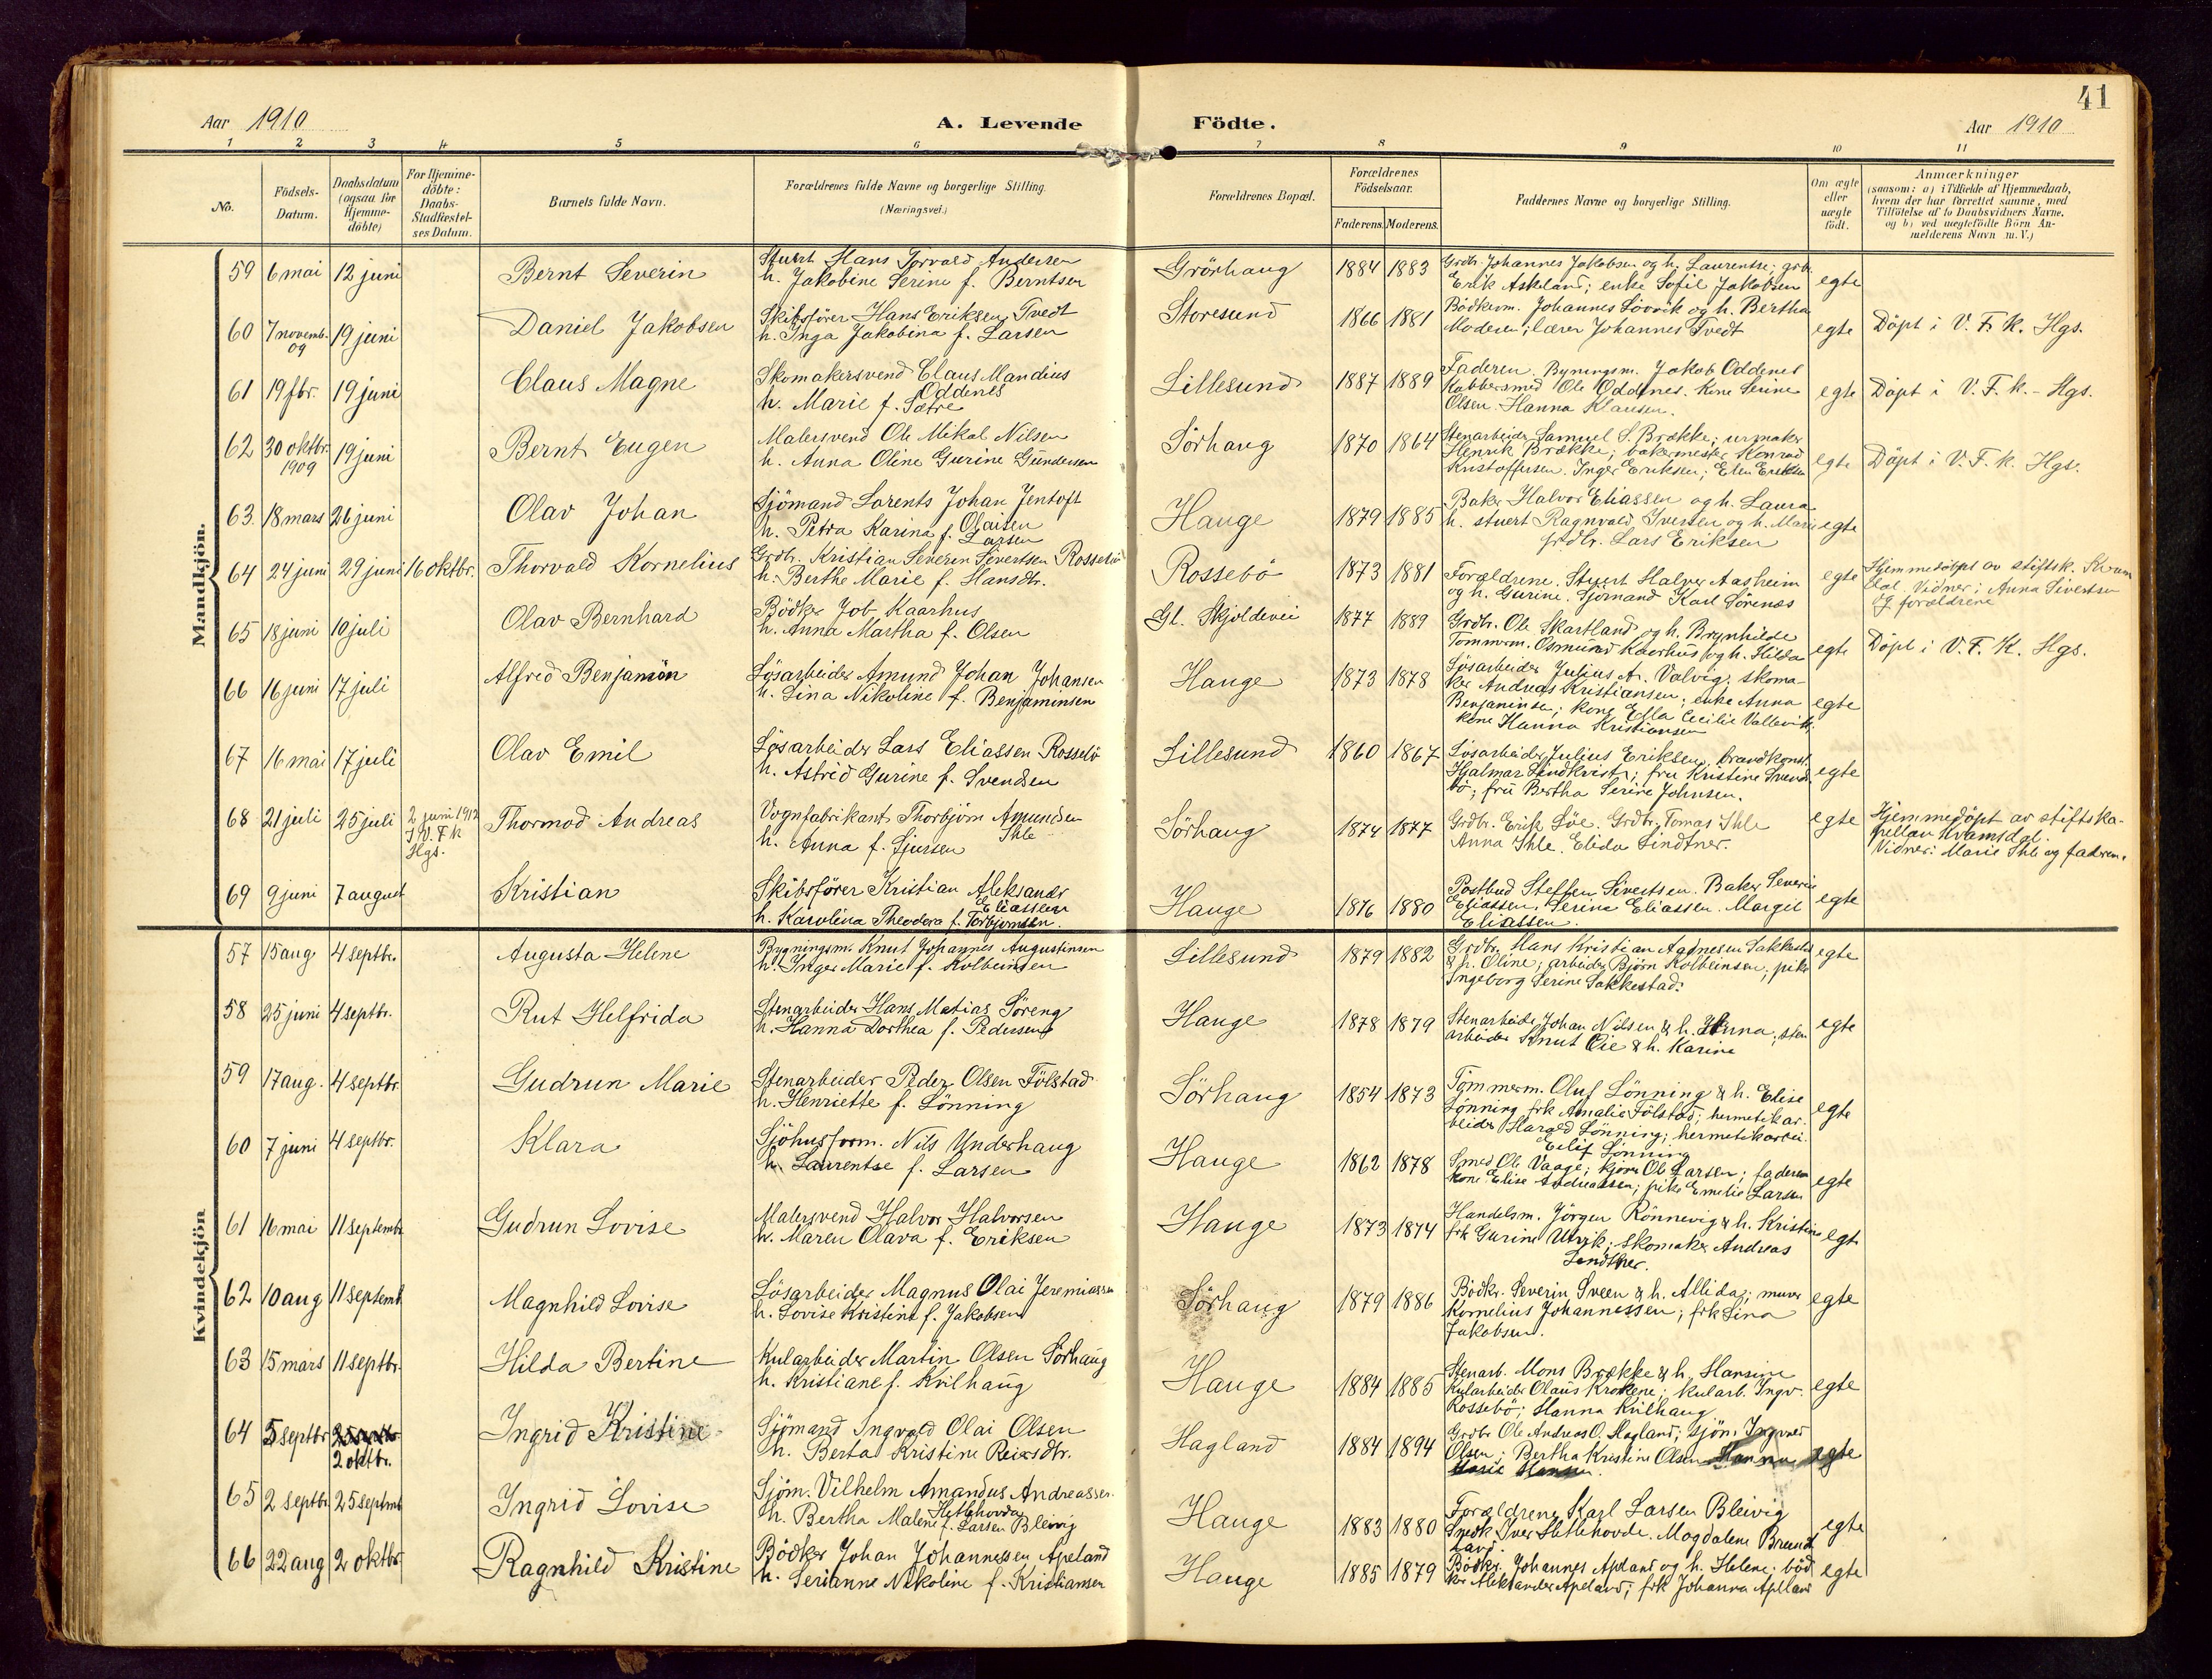 41
Aar 1910
A. Levende
Födte.
Aar 1910
1 2 3 4 5 6 7 8 9 10 11
No.
Födsels-Datum.
Daabsdatum (ogsaa for Hjemme-döbte)
For Hjemme-döbte: Daabs-Stadfæstel-ses Datum.
Barnets fulde Navn.
Forældrenes fulde Navne og borgerlige Stilling.
(Næringsvei.)
Forældrenes Bopæl.
Forældrenes Födselsaar.
Faderens. Moderens.
Faddernes Navne og borgerlige Stilling.
Om ægte eller uægte födt.
Anmærkninger
(saasom: a) i Tilfælde af Hjemmedaab,
hvem der har forrettet samme, med
Tilföielse af to Daabsvidners Navne.
og b) ved uægtefödte Börn An-
melderens Navn m. V.)
Mandkjön.
59 6 mai 12 juni Bernt Severin
Stuert Hans Torvald Andersen
h. Jakobine Serine f. Berntsen
Grörhaug 1884 1883
Grdb. Johannes Jakobsen og h. Laurentse; grb.
Erik Askeland; enke Sofie Jakobsen
egte
60 7 novemb. 09 19 juni Daniel Jakobsen
Skibsförer Hans Eriksen Tvedt
h. Inga Jakobina f. Larsen
Storesund 1866 1881
Bödkerm. Johannes Lövvik og h. Bertha
Moderen; lærer Johannes Tvedt
egte Döpt i V. F. K. Hgs.
61 19 fbr. 19 juni Claus Magne
Skomakersvend Claus Mandius
Oddenes
h. Marie f. Sætre
Lillesund 1887 1889
Faderen. Bygningsm. Jakob Oddenes
Kobbersmed Ole Oddenes. Kone Serine
Olsen. Hanna Klausen.
egte Döpt i V. F. k. - Hgs.
62 30 oktbr. 1909 19 juni Bernt Eugen
Malersvend Ole Mikal Nilsen
h. Anna Oline Gurine Gundersen
Sörhaug 1870 1864
Stenarbeider Samuel S. Brække; urmaker
Henrik Brække; bakermester Konrad
Kristoffersen. Inger Eriksen; Elen Eriksen
egte Döpt i V. F. k. Hgs.
63. 18 mars 26 juni Olav Johan
Sjömand Lorents Johan Jentoft
Olausen
h. Petra Karina f. Larsen
Hauge 1879 1885
Baker Halvor Eliassen og h. Laura
h. stuert Ragnvald Iversen og h. Marie
grdbr. Lars Eriksen
egte
64 24 juni 29 juni 16 oktbr. Thorvald Kornelius
Grdbr. Kristian Severin Sivertsen Rossebö
h. Berthe Marie f. Hansdtr.
Rossebö 1873 1881
Forældrene. Stuert Halvor Aasheim
og h. Gurine. Sjömand Karl Sörenæs
egte
Hjemmedöpt av stiftsk. Kvams
dal. Vidner: Anna Sivertsen
og forældrene
65 18 juni 10 juli Olav Bernhard
Bödker Job Kaarhus
h. Anna Martha f. Olsen
Gl. Skjoldevei 1877 1889
Grdbr. Ole Skartland og h. Brynhilde
Tömmerm. Osmund Kaarhus og h. Hilda
egte Döpt i V. F. K. Hgs.
66 16 juni 17 juli Alfred Benjamin
Lösarbeider Amund Johan Johansen
h. Lina Nikoline f. Benjaminsen
Hauge 1873 1878
Lösarbeider Julius A. Valvig; skoma-
ker Andreas Kristiansen; enke Anna
Benjaminsen; kone Ella Cecilie Vallevik;
kone Hanna Kristiansen
egte
67 16 mai 17 juli Olav Emil
Lösarbeider Lars Eliassen Rossebö
h. Astrid Gurine f. Svendsen
Lillesund 1860 1867
Lösarbeider Julius Eriksen, brandkonst.
Hjalmar Lindkvist; fru Kristine Svends
bö; fru Bertha Serine Johnsen.
egte
68 21 juli 25 juli 2 juni 1912 I V. F k Hgs. Thormod Andreas
Vognfabrikant Thorbjörn Amundsen
Ihle
h. Anna f. Sjursen
Sörhaug 1874 1877
Grdbr. Erik Löe. Grdbr. Tomas Ihle
Anna Ihle. Elida Lindtner.
egte
Hjemmedöpt av stiftska-
pellan Kvamsdal.
Vidner: Marie Ihle og faderen.
69 9 juni 7 august Kristian
Skibsförer Kristian Aleksander
Eliassen
h. Karolina Theodora f. Torbjörnsen.
Hauge 1876 1880
Postbud Steffen Sivertsen. Baker Severin
Eliassen. Serine Eliassen. Margit
Eliassen.
egte
Kvindekjön
57 15 aug 4 septbr. Augusta Helene
Bygningsm. Knut Johannes Augustinsen
h. Inger Marie f. Kolbeinsen
Lillesund 1879 1882
Grdbr. Hans Kristian Aadnesen Sakkestad
& h. Oline; arbeider Björn Kolbeinsen; pike
Ingeborg Serine Sakkestad.
egte
58 25 juni 4 septbr. Rut Helfrida
Stenarbeider Hans Matias Söreng
h. Hanna Dorthea f. Pedersen
Hauge 1878 1879
Stenarbeider Johan Nilsen & h. Anna; sten
arbeider Knut Öie & h. Karine
egte
59 17 aug. 4 septbr. Gudrun Marie
Stenarbeider Peder Olsen Fölstad
h. Henriette f. Lönning
Sörhaug 1854 1873
Tömmerm. Oluf Lönning & h. Elise
Lönning frk Amalie Fölstad; hermetikar-
beider Harald Lönning; hermetikarbei.
Eilif Lönning
egte
60 7 juni 4 septbr. Klara
Sjöhusform. Nils Underhaug
h. Laurentse f. Larsen
Hauge 1862 1878
Smed Ole Vaage; kjörer Ole Larsen; faderen
kone Elise Andreassen; pike Emelie Larsen
egte
61 16 mai 11 septembr Gudrun Lovise
Malersvend Halvor Halvorsen
h. Maren Olava f. Eriksen
Hauge 1873 1874
Handelsm. Jörgen Rönnevig & h. Kristine
frk Gurine Utvik; skomaker Andreas
Lindtner.
egte
62 10 aug 11 septemb Magnhild Lovise
Lösarbeider Magnus Olai Jeremiassen
h. Lovise Kristine f. Jakobsen
Sörhaug 1879 1886
Bödkr. Severin Sveen & h. Allida; murer
Kornelius Johannessen; frk Lina
Jakobsen.
egte
63 15 mars 11 septbr. Hilda Bertine
Kularbeider Martin Olsen Sörhaug
h. Kristiane f. Kvilhaug
Hauge 1884 1885
Stenarb. Mons Brække & h. Hansine
Kularbeider Olaus Krokene; kularb. Ingv.
Rossebö; Hanna Kvilhaug
egte
64 5 septbr 2 oktbr. Ingrid Kristine
Sjömand Ingvald Olai Olsen
h. Berta Kristine Reiersdtr.
Hagland 1884 1894
Grdbr Ole Andreas O. Hagland; sjöm. Ingvard
Olsen; Bertha Kristine Olsen Hanna
Marie Hansen.
egte
65 2 septbr. 25 septmb Ingrid Lovise
Sjöm. Vilhelm Amandus Andreassen
Hetlehovda
h. Bertha Malene f. Larsen Bleivig
Hauge 1883 1880
Forældrene Karl Larsen Bleivig
Snedk Iver Hetlehovde. Magdalene Brundt
land.
egte
66 22 aug 2 oktbr Ragnhild Kristine
Bödker Johan Johannessen Apeland
h. Serianne Nikoline f. Kristiansen
Hauge 1885 1879
Bödkr. Johannes Apeland og h. Helene; böd
ker Aleksander Apeland; frk Johanna Apeland
egte